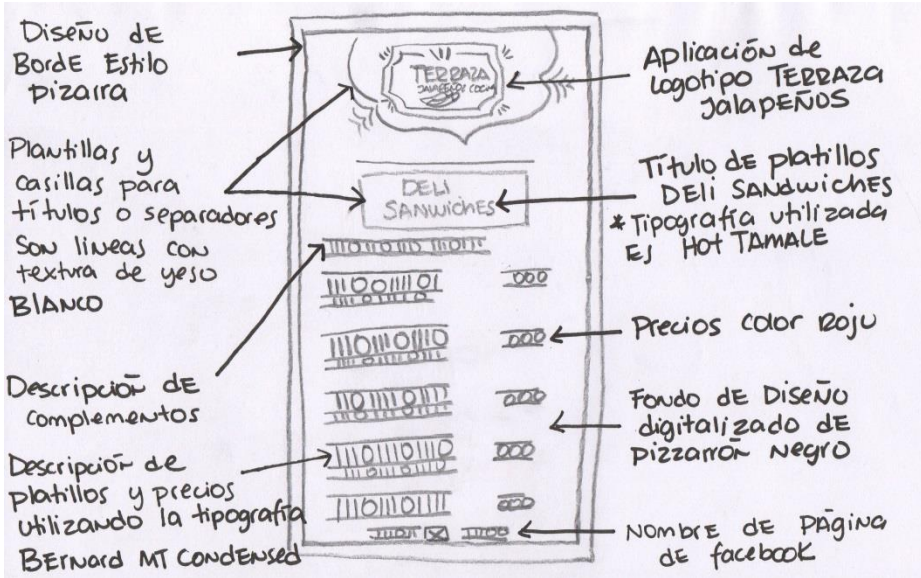 Diseño de
Borde Estilo
pizarra
Plantillas y
casillas para
títulos o separadores
son lineas con
textura de yeso
Blanco
Descripción de
complementos
Descripción de
platillos y precios
utilizando la tipografía
Bernard MT Condensed
TERRAZA
JALAPEÑOS
DELI
SANWICHES
Aplicación de
logotipo TERRAZA
JALAPEÑOS
Título de platillos
DELI SANDWICHES
* Tipografía utilizada
Es HOT TAMALE
Precios color Rojo
Fondo de Diseño
digitalizado de
Pizzarrón Negro
Nombre de Página
de facebook